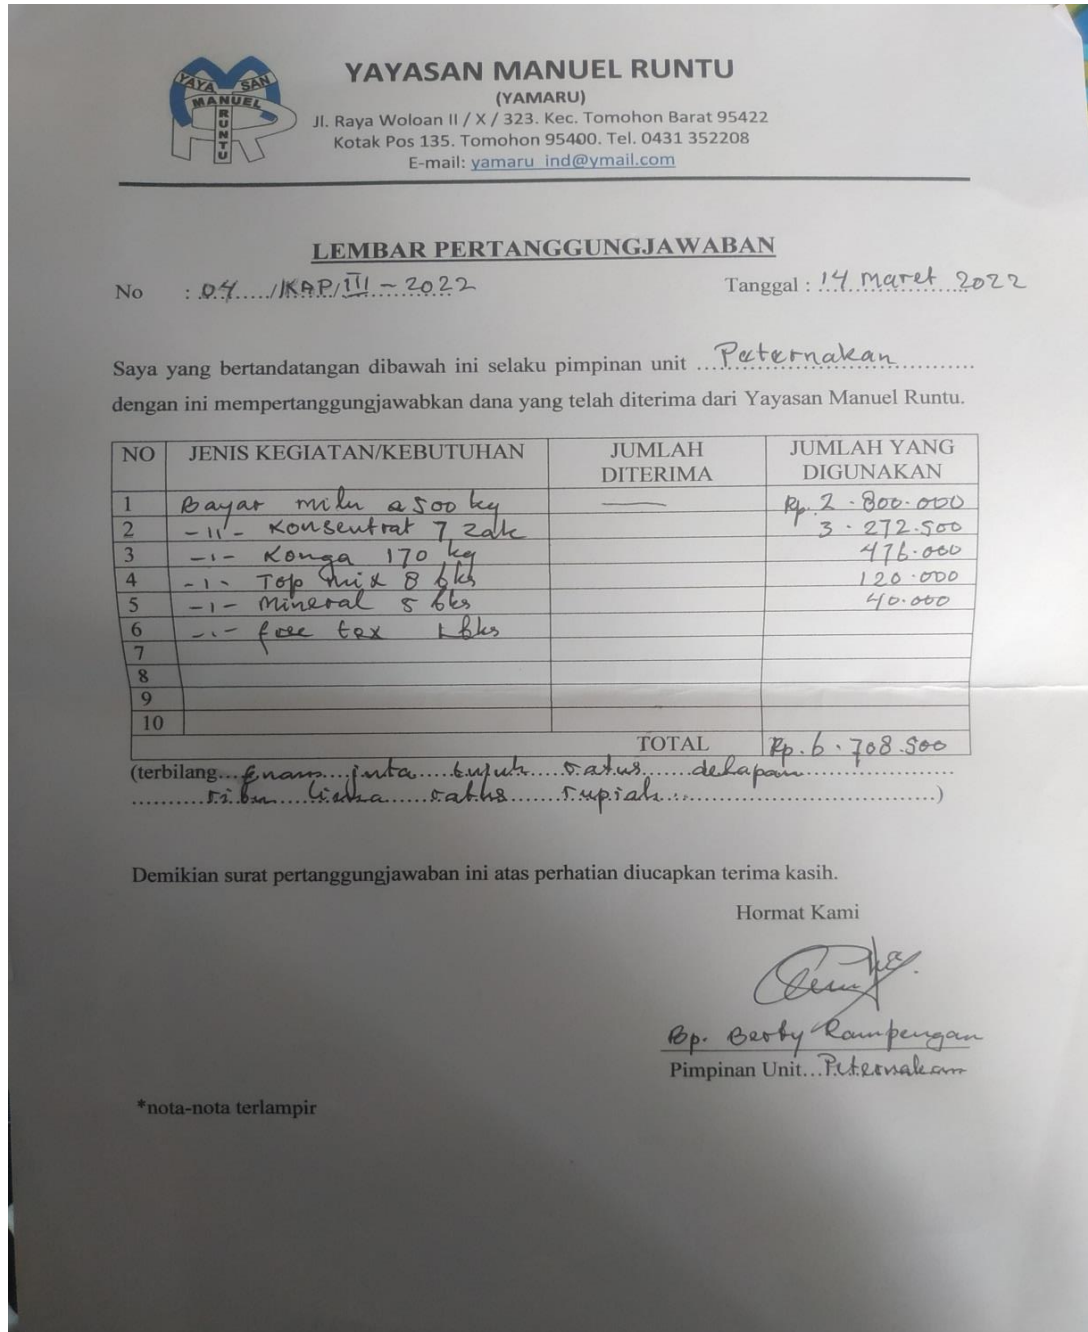 YAYA SAN
MANUEL
RUNTU
YAYASAN MANUEL RUNTU
(YAMARU)
Jl. Raya Woloan II / X / 323. Kec. Tomohon Barat 95422
Kotak Pos 135. Tomohon 95400. Tel. 0431 352208
E-mail: yamaru_ind@ymail.com
LEMBAR PERTANGGUNGJAWABAN
No : 04...../KAP/III - 2022 Tanggal : 14 Maret 2022
Saya yang bertandatangan dibawah ini selaku pimpinan unit ...Peternakan...
dengan ini mempertanggungjawabkan dana yang telah diterima dari Yayasan Manuel Runtu.
NO JENIS KEGIATAN/KEBUTUHAN JUMLAH DITERIMA JUMLAH YANG DIGUNAKAN
1 Bayar milu a 500 kg — Rp. 2.800.000
2 -11- Konsentrat 7 zak 3.272.500
3 -1- Konga 170 kg 476.000
4 -1- Top mix 8 bks 120.000
5 -1- Mineral 5 bks 40.000
6 -1- tex 1 bks
7
8
9
10
TOTAL Rp. 6.708.500
(terbilang...enam juta tujuh ratus delapan
ribu lima ratus rupiah...)
Demikian surat pertanggungjawaban ini atas perhatian diucapkan terima kasih.
Hormat Kami
Bp. Berty Rampengan
Pimpinan Unit...Peternakan
*nota-nota terlampir